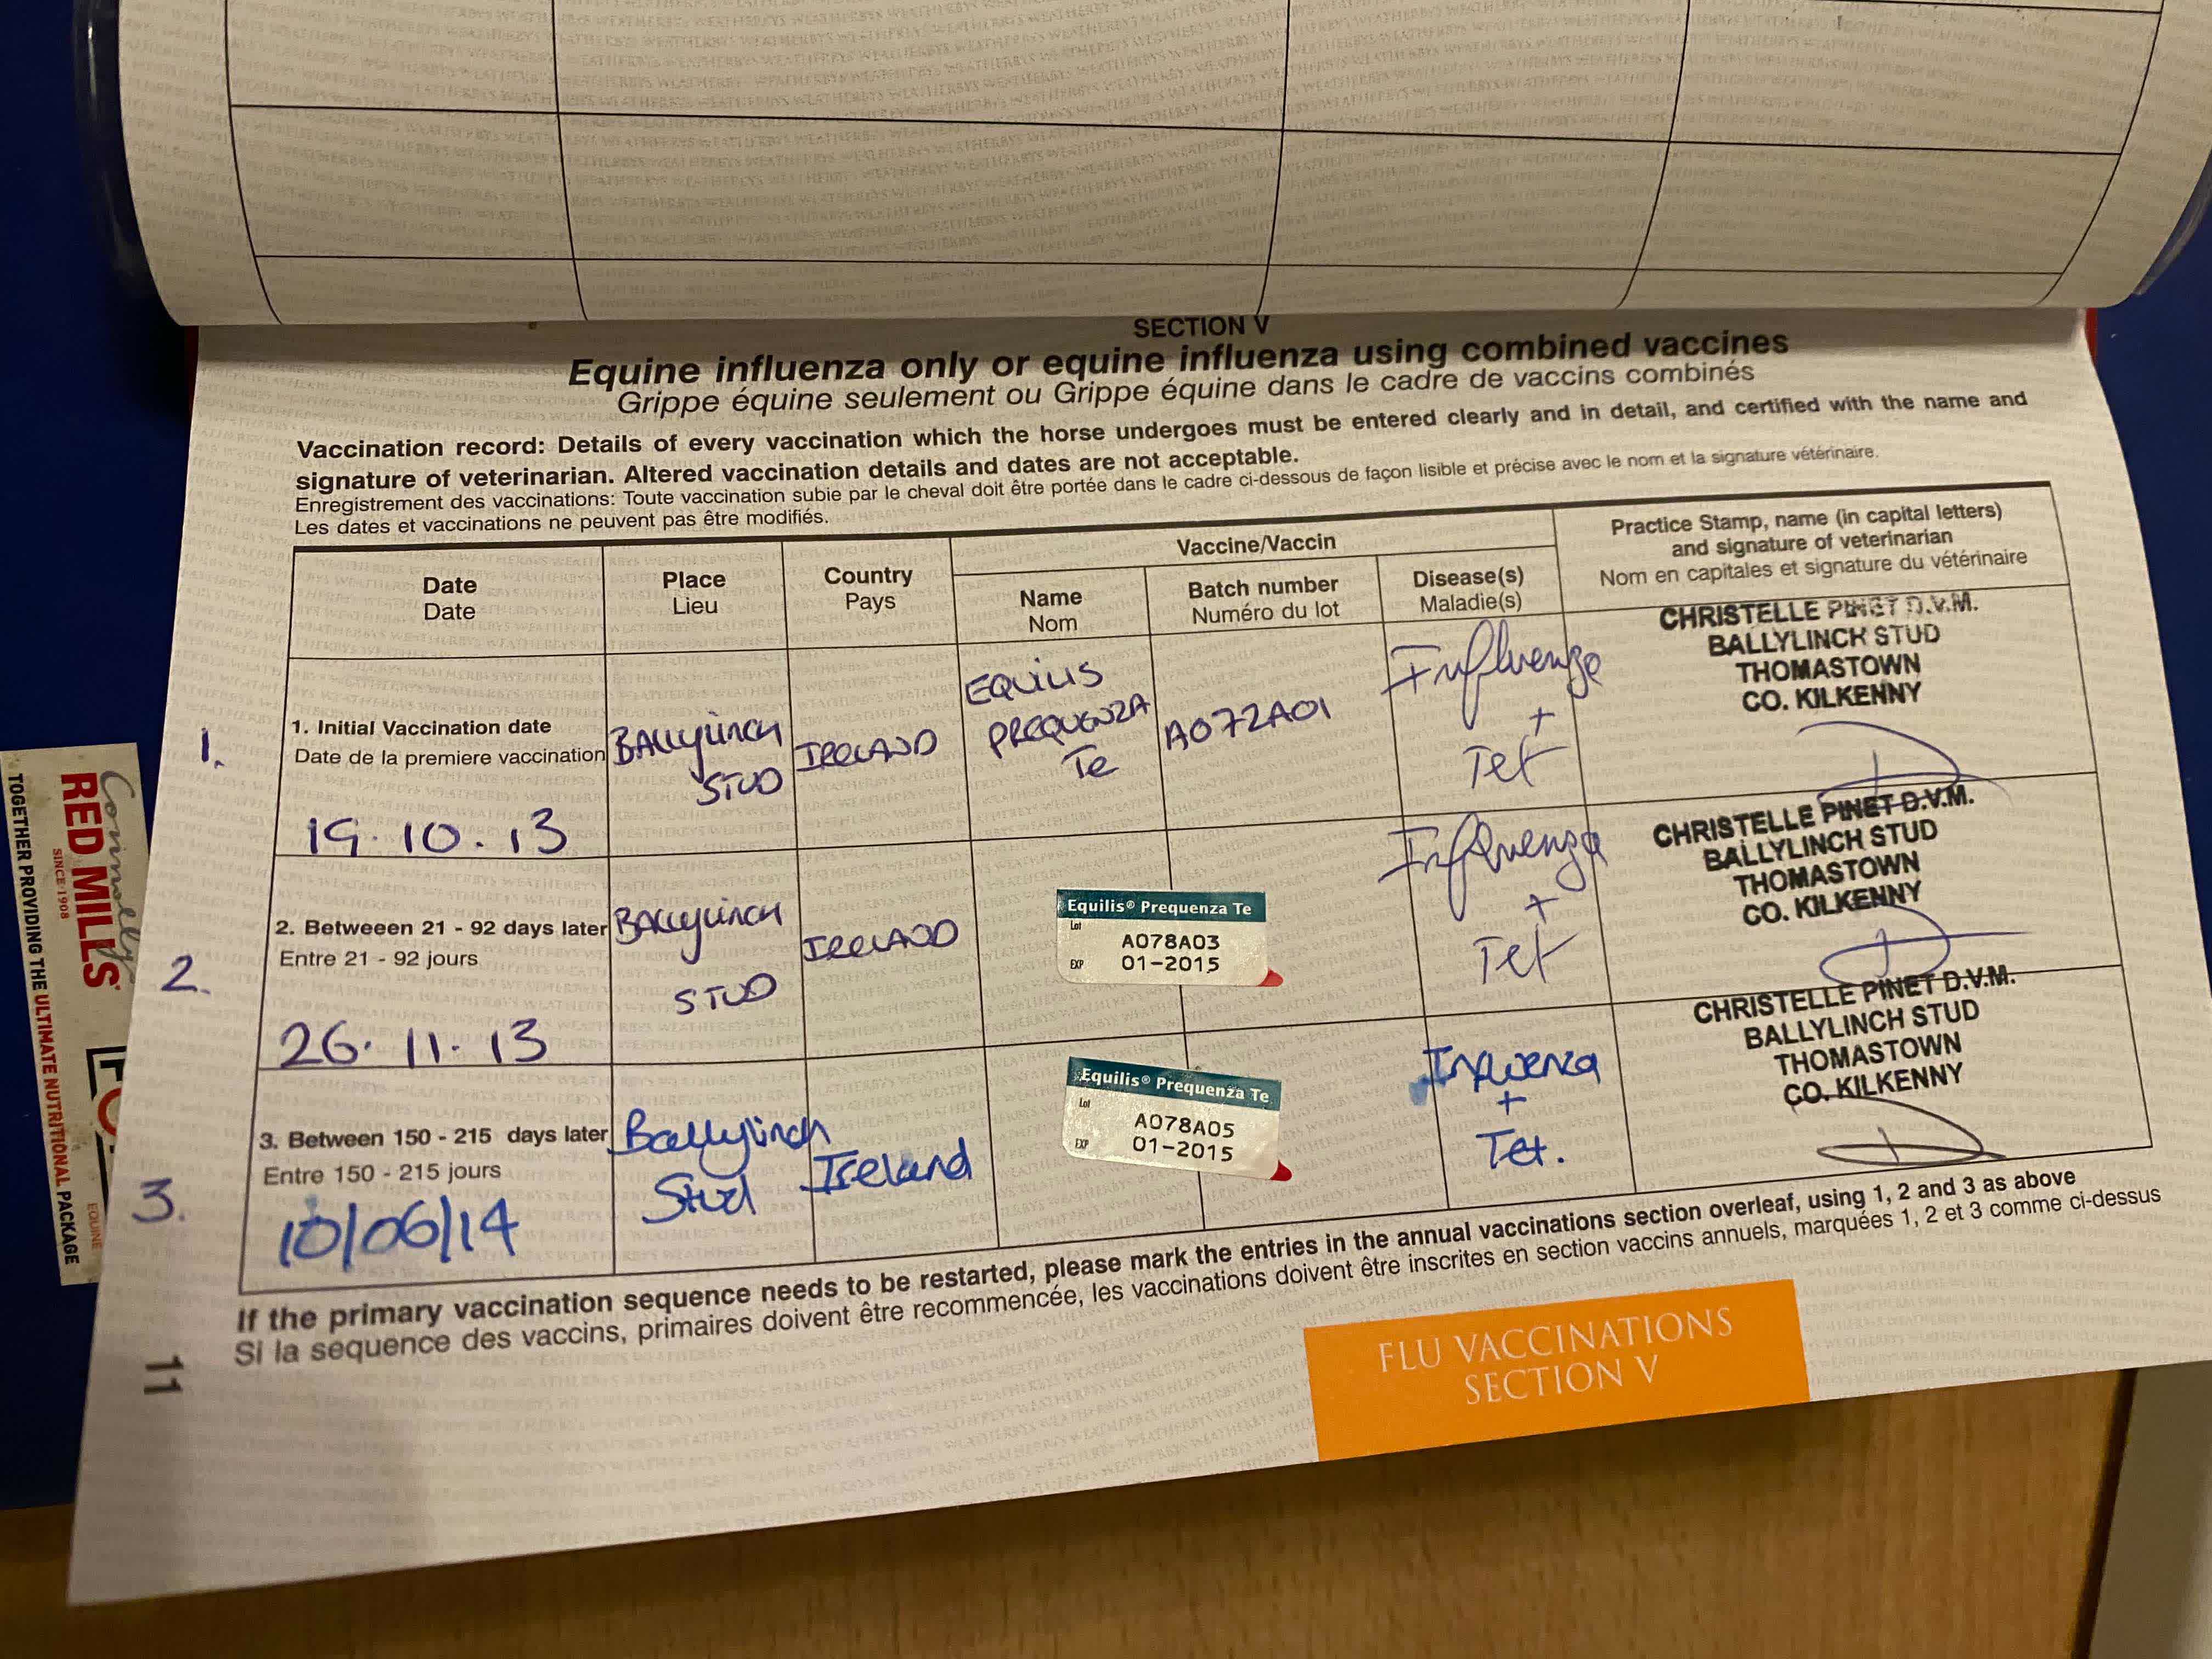 SECTION V
Equine influenza only or equine influenza using combined vaccines
Grippe équine seulement ou Grippe équine dans le cadre de vaccins combinés
Vaccination record: Details of every vaccination which the horse undergoes must be entered clearly and in detail, and certified with the name and
signature of veterinarian. Altered vaccination details and dates are not acceptable.
Enregistrement des vaccinations: Toute vaccination subie par le cheval doit être portée dans le cadre ci-dessous de façon lisible et précise avec le nom et la signature vétérinaire.
Les dates et vaccinations ne peuvent pas être modifiés.
Date
Date
Place
Lieu
Country
Pays
Vaccine/Vaccin
Name
Nom
Batch number
Numéro du lot
Disease(s)
Maladie(s)
Practice Stamp, name (in capital letters)
and signature of veterinarian
Nom en capitales et signature du vétérinaire
1.
1. Initial Vaccination date
Date de la premiere vaccination
19.10.13
BALLYLINCH
STUD
IRELAND
EQUILIS
PREQUENZA
Te
A072A01
Influenza
+
Tet
CHRISTELLE PINET D.V.M.
BALLYLINCH STUD
THOMASTOWN
CO. KILKENNY
2.
2. Betweeen 21 - 92 days later
Entre 21 - 92 jours
26.11.13
BALLYLINCH
STUD
IRELAND
Equilis® Prequenza Te
Lot
A078A03
EXP 01-2015
Influenza
+
Tet
CHRISTELLE PINET D.V.M.
BALLYLINCH STUD
THOMASTOWN
CO. KILKENNY
3.
3. Between 150 - 215 days later
Entre 150 - 215 jours
10/06/14
Ballylinch
Stud
Ireland
Equilis® Prequenza Te
Lot
A078A05
EXP 01-2015
Influenza
+
Tet.
CHRISTELLE PINET D.V.M.
BALLYLINCH STUD
THOMASTOWN
CO. KILKENNY
If the primary vaccination sequence needs to be restarted, please mark the entries in the annual vaccinations section overleaf, using 1, 2 and 3 as above
Si la sequence des vaccins, primaires doivent être recommencée, les vaccinations doivent être inscrites en section vaccins annuels, marquées 1, 2 et 3 comme ci-dessus
11
FLU VACCINATIONS
SECTION V
Connolly
RED MILLS
SINCE 1908
TOGETHER PROVIDING THE ULTIMATE NUTRITIONAL PACKAGE
EQUINE